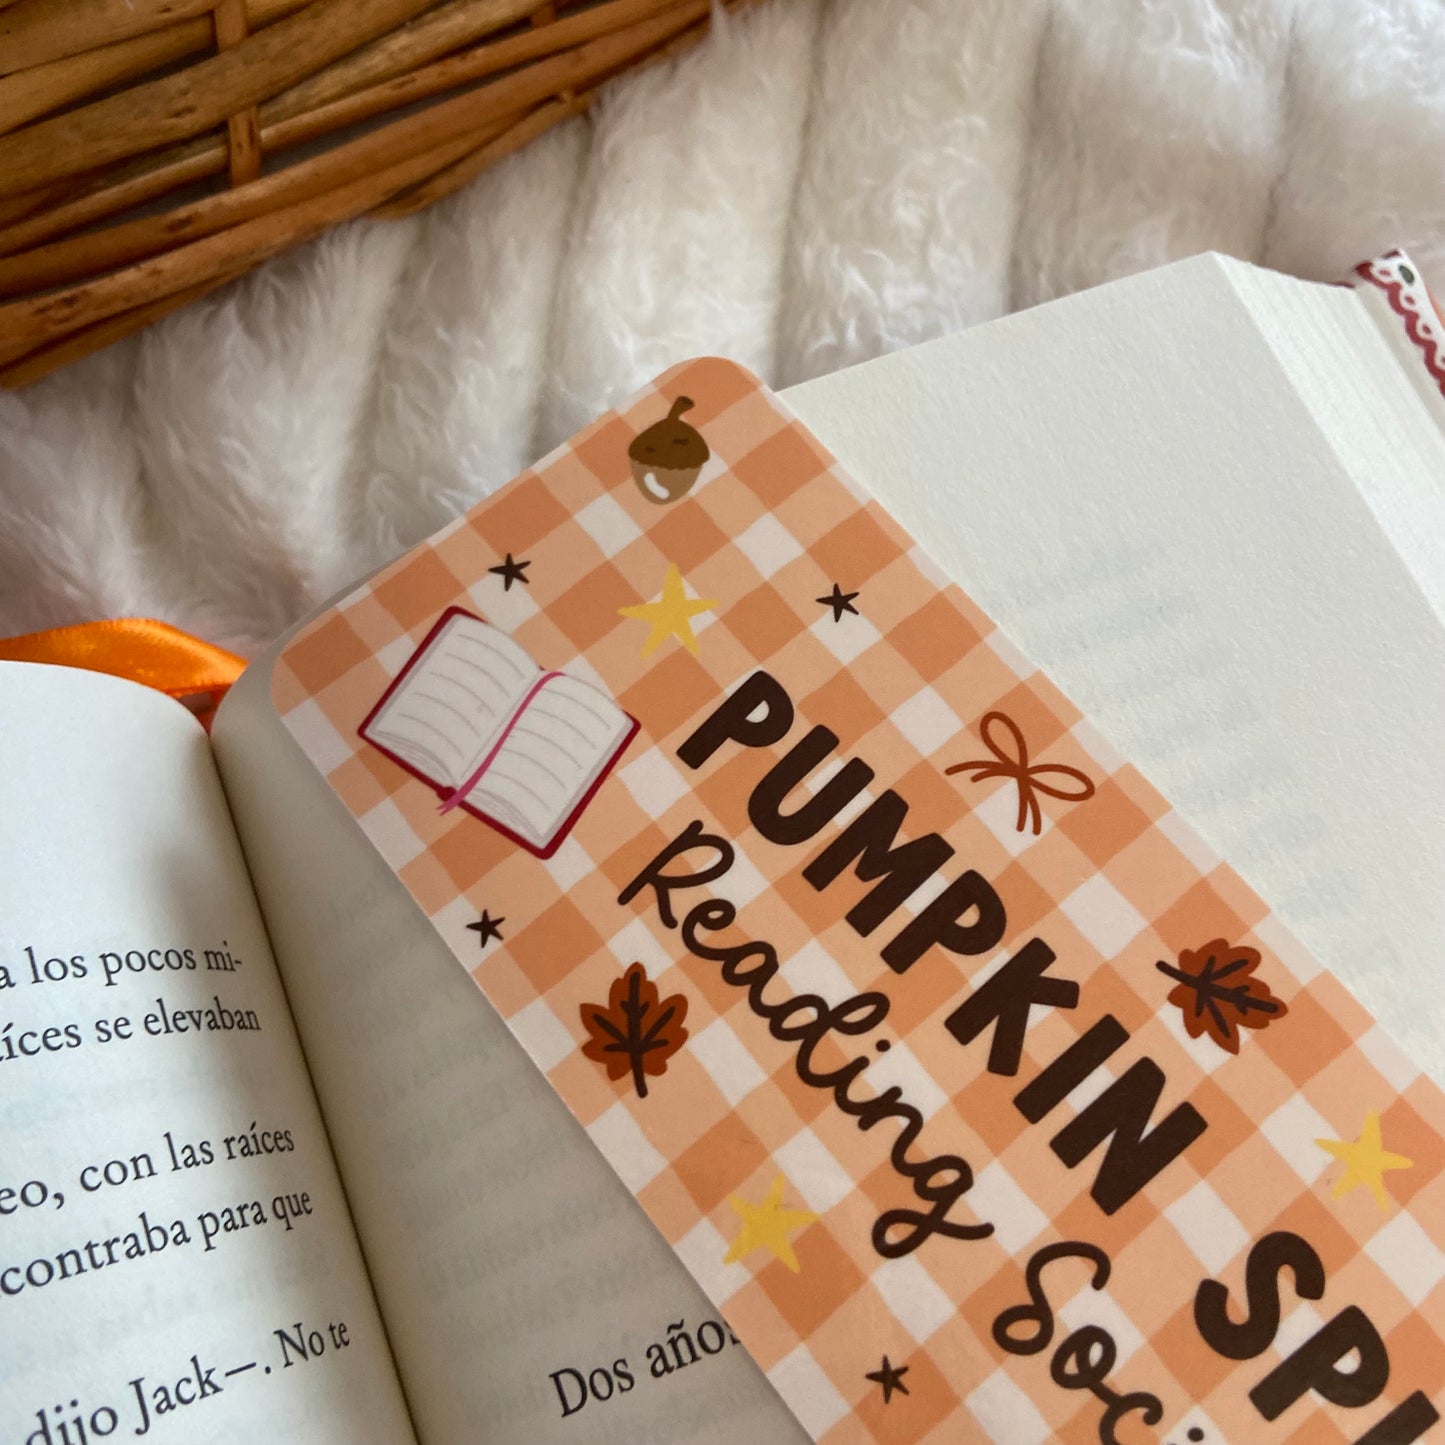 a los pocos mi-
íces se elevaban
eo, con las raíces
contraba para que
dijo Jack—. No te
Dos años
PUMPKIN SPI
Reading Soci